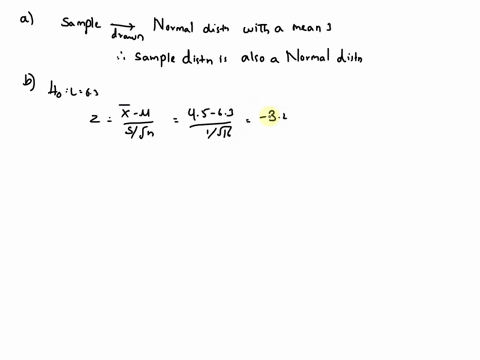 a) Sample → drawn Normal distn with a mean 3
∴ Sample distn is also a Normal distn
b) H₀ : L = 6.3
Z = x̄ - u / s/√n = 4.5 - 6.3 / 1/√16 = -3.2